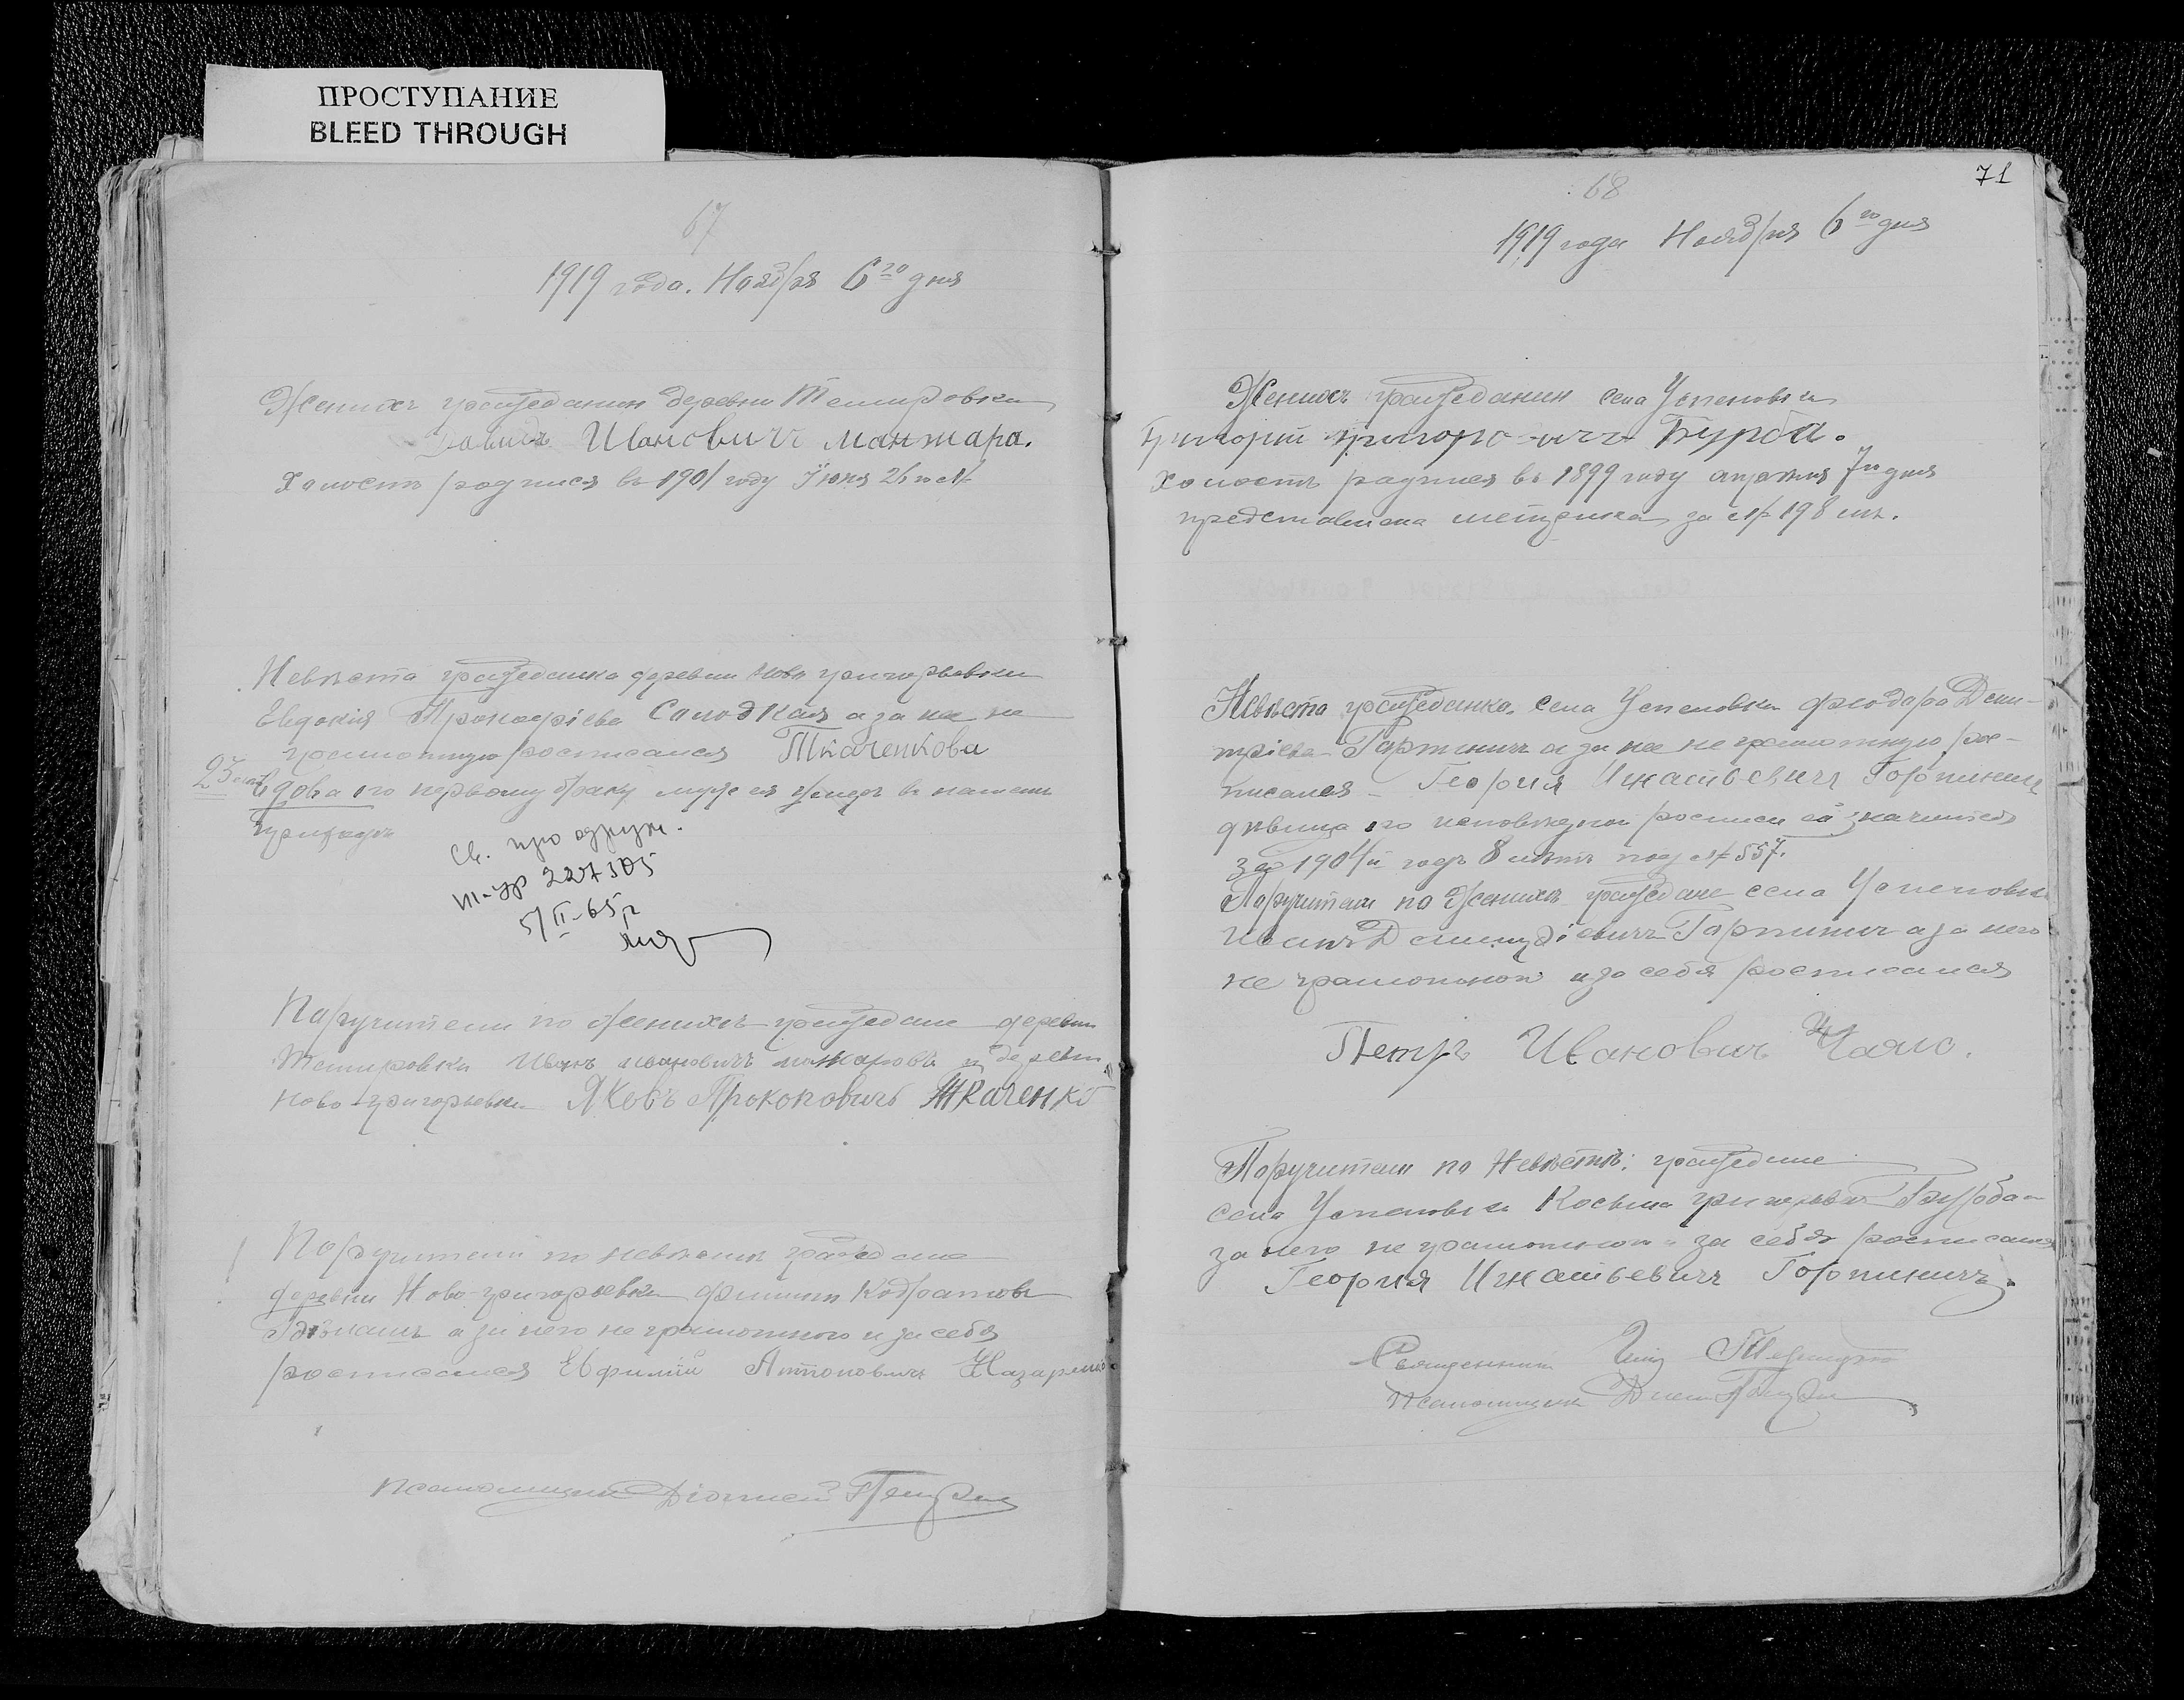 ПРОСТУПАНИЕ
BLEED THROUGH
67
1919 года. Ноября 6го дня
Женихъ гражданин деревни Темировки
Давидъ Ивановичъ Манжара.
Холостъ родился въ 1901 году Июня 26
Невѣста гражданка деревни Ново григорьевки
Евдокія Прокофіева Солодкая а за нее не
грамотную росписался Ткаченкова
23 лет
Вдова по первому браку муж ея умеръ в нашем
приходѣ
Св. про одруж.
III-УР 227305
5/II-65р
Поручители по женихѣ граждане деревни
Темировки Иванъ Ивановичъ и деревни
Ново-григорьевки Яковъ Прокоповичъ Ткаченко
Поручители по невѣстѣ граждане
деревни Ново-григорьевки Филипп Кодратовъ
а за него не грамотного и за себя
росписался Евфимій Антоновичъ Назаренко
псаломщикъ Діонисій
71
68
1919 года Ноября 6го дня
Женихъ гражданин села Успеновки
Григорий Бурба.
Холостъ родился въ 1899 году апреля 7го дня
представлена метрика за № 198
Невѣста гражданка села Успеновки Феодора Дми-
тріева Гарпинич а за нее не грамотную рос-
писался Георгия Игнатьевичъ Горпинич
дѣвица по исповѣдной росписи ей значится
за 1904й годъ 8 лѣтъ под № 557.
Поручители по Женихѣ граждане села Успеновки
Иванъ Гарпинич а за него
не грамотного и за себя росписался
Петръ Ивановичъ Чало.
Поручители по Невѣстѣ: граждане
села Успеновки Косьма григорьевич Бурба а
за него не грамотного и за себя росписался
Георгия Игнатьевичъ Горпиничъ.
Священник
псаломщикъ